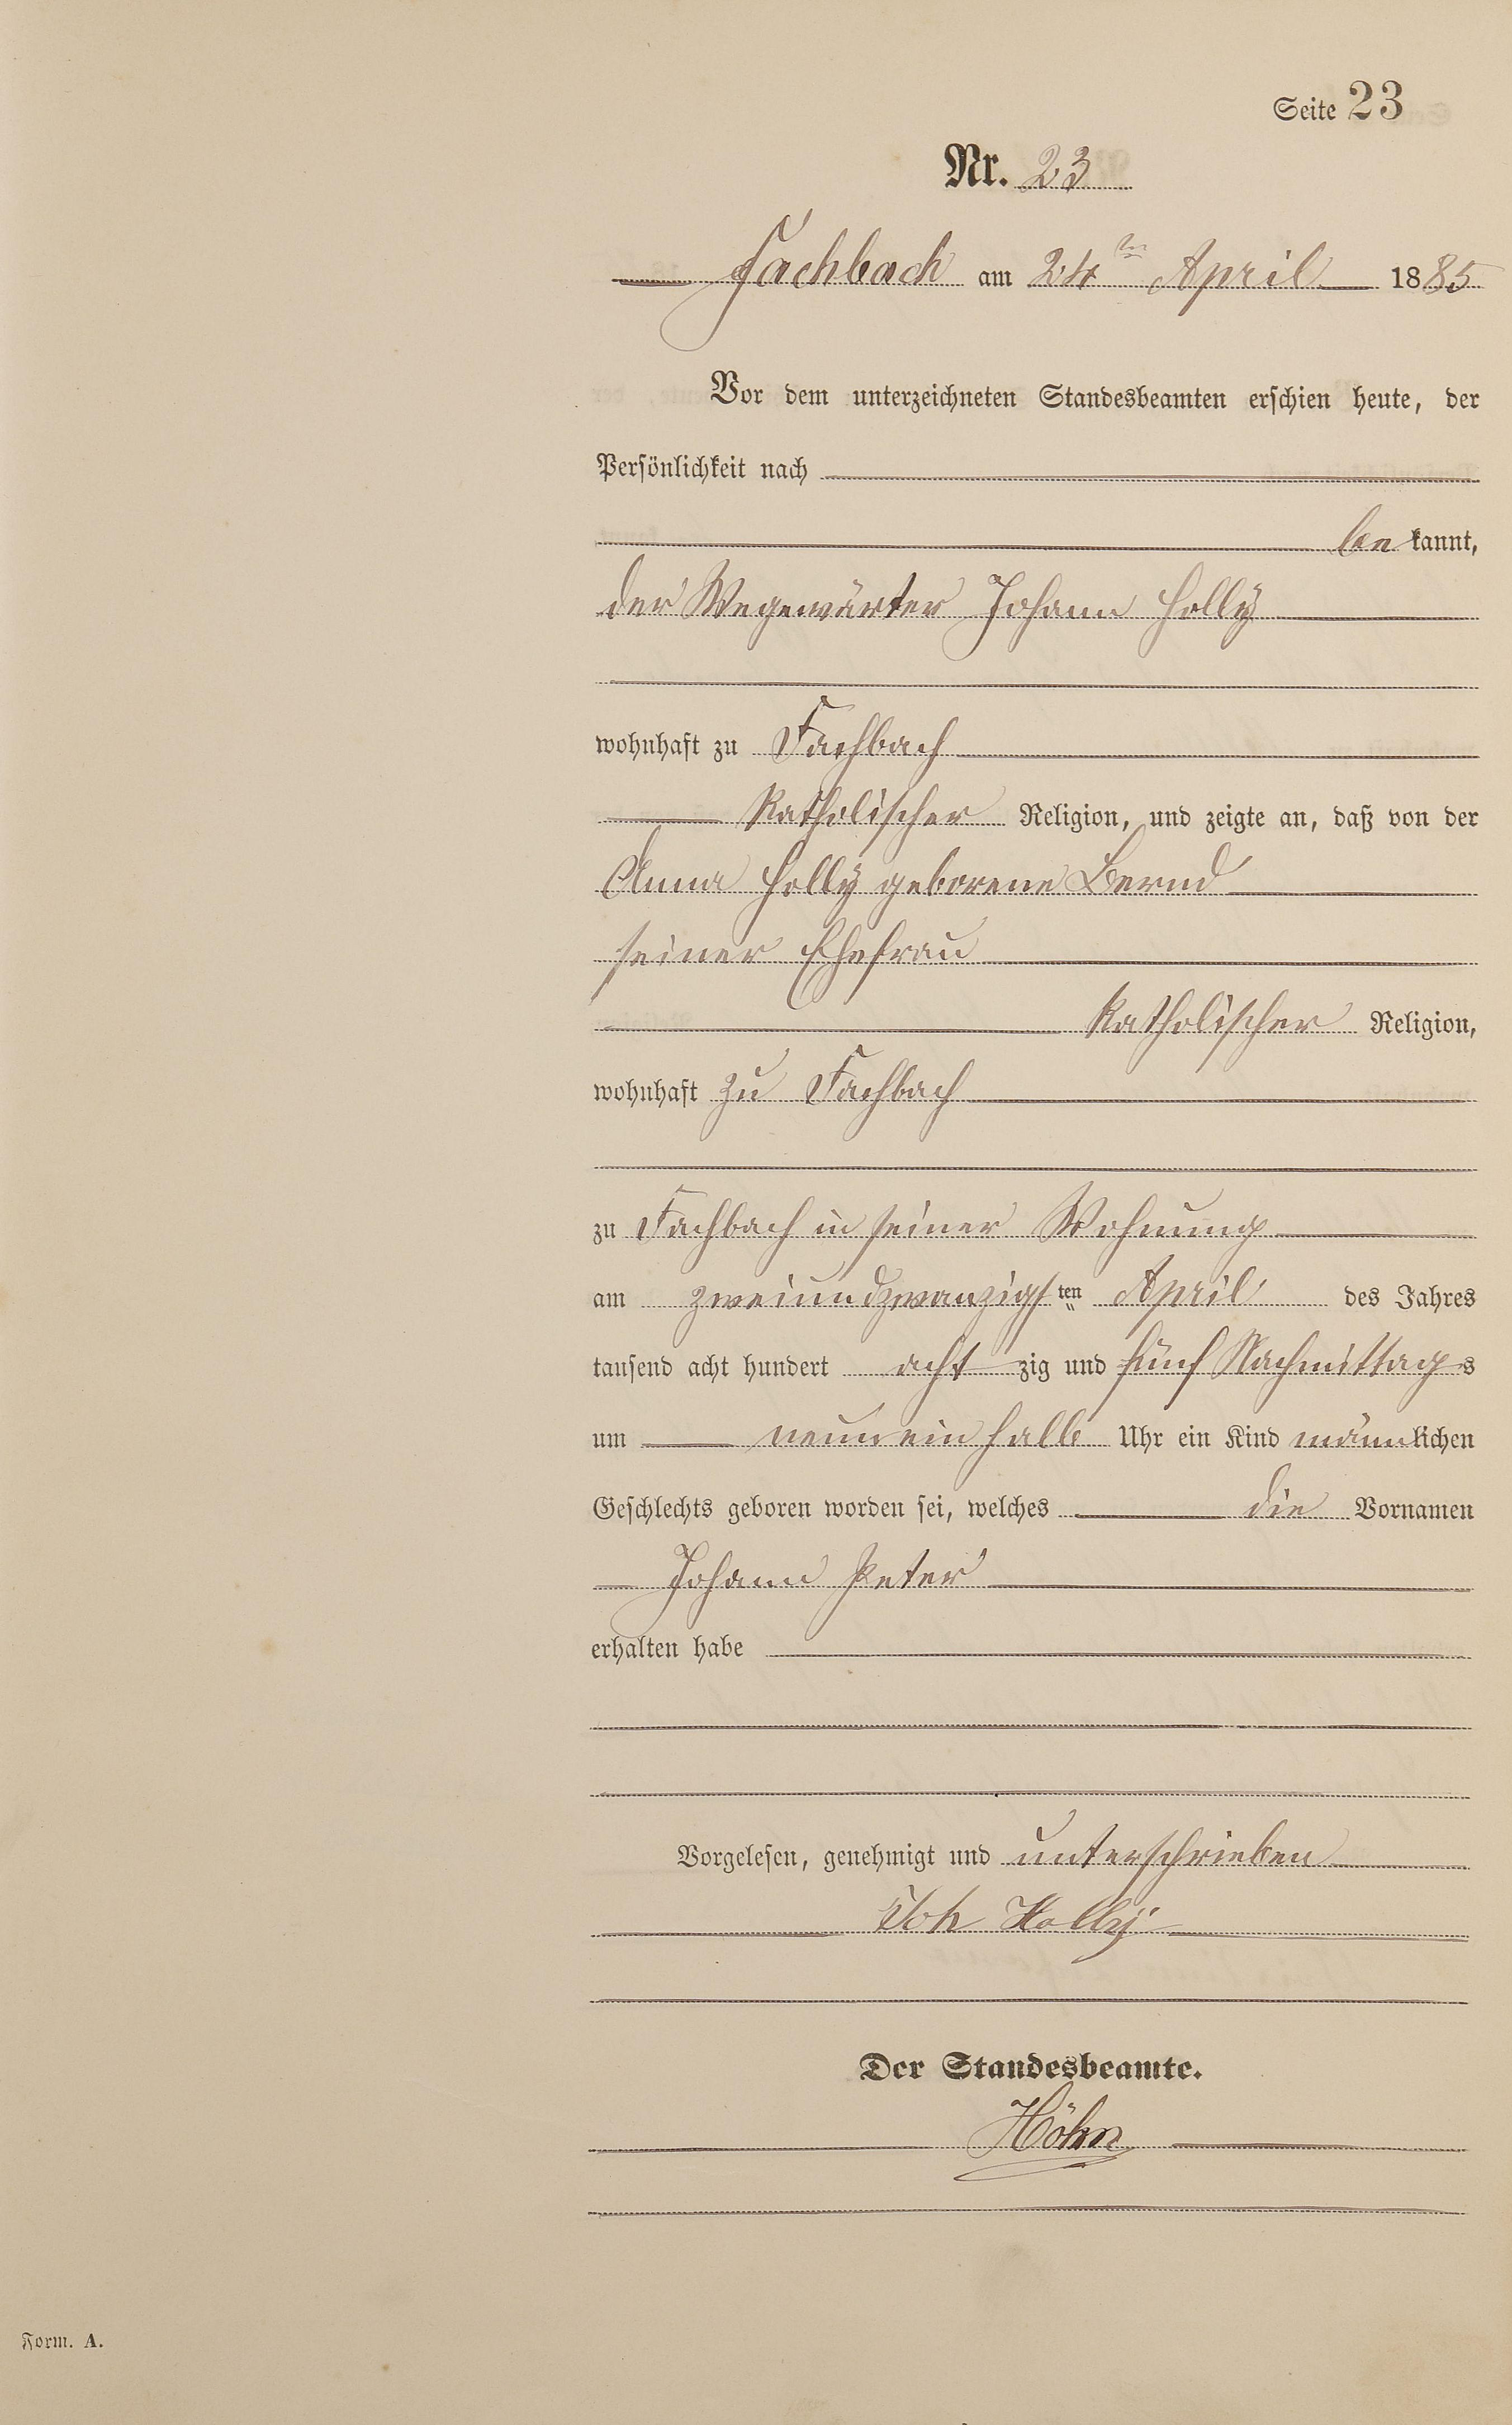 Seite 23
Nr. 23
Fachbach am 24ten April 1885
Vor dem unterzeichneten Standesbeamten erschien heute, der
Persönlichkeit nach
bekannt,
der Wegewärter Johann Holly
wohnhaft zu Fachbach
katholischer Religion, und zeigte an, daß von der
Anna Holly geborene Bernd
seiner Ehefrau
katholischer Religion,
wohnhaft zu Fachbach
zu Fachbach in seiner Wohnung
am zweiundzwanzigsten April des Jahres
tausend acht hundert achtzig und fünf Nachmittags
um neun ein halb Uhr ein Kind männlichen
Geschlechts geboren worden sei, welches die Vornamen
Johann Peter
erhalten habe
Vorgelesen, genehmigt und unterschrieben
Joh Holly
Der Standesbeamte.
Höhn
Form. A.